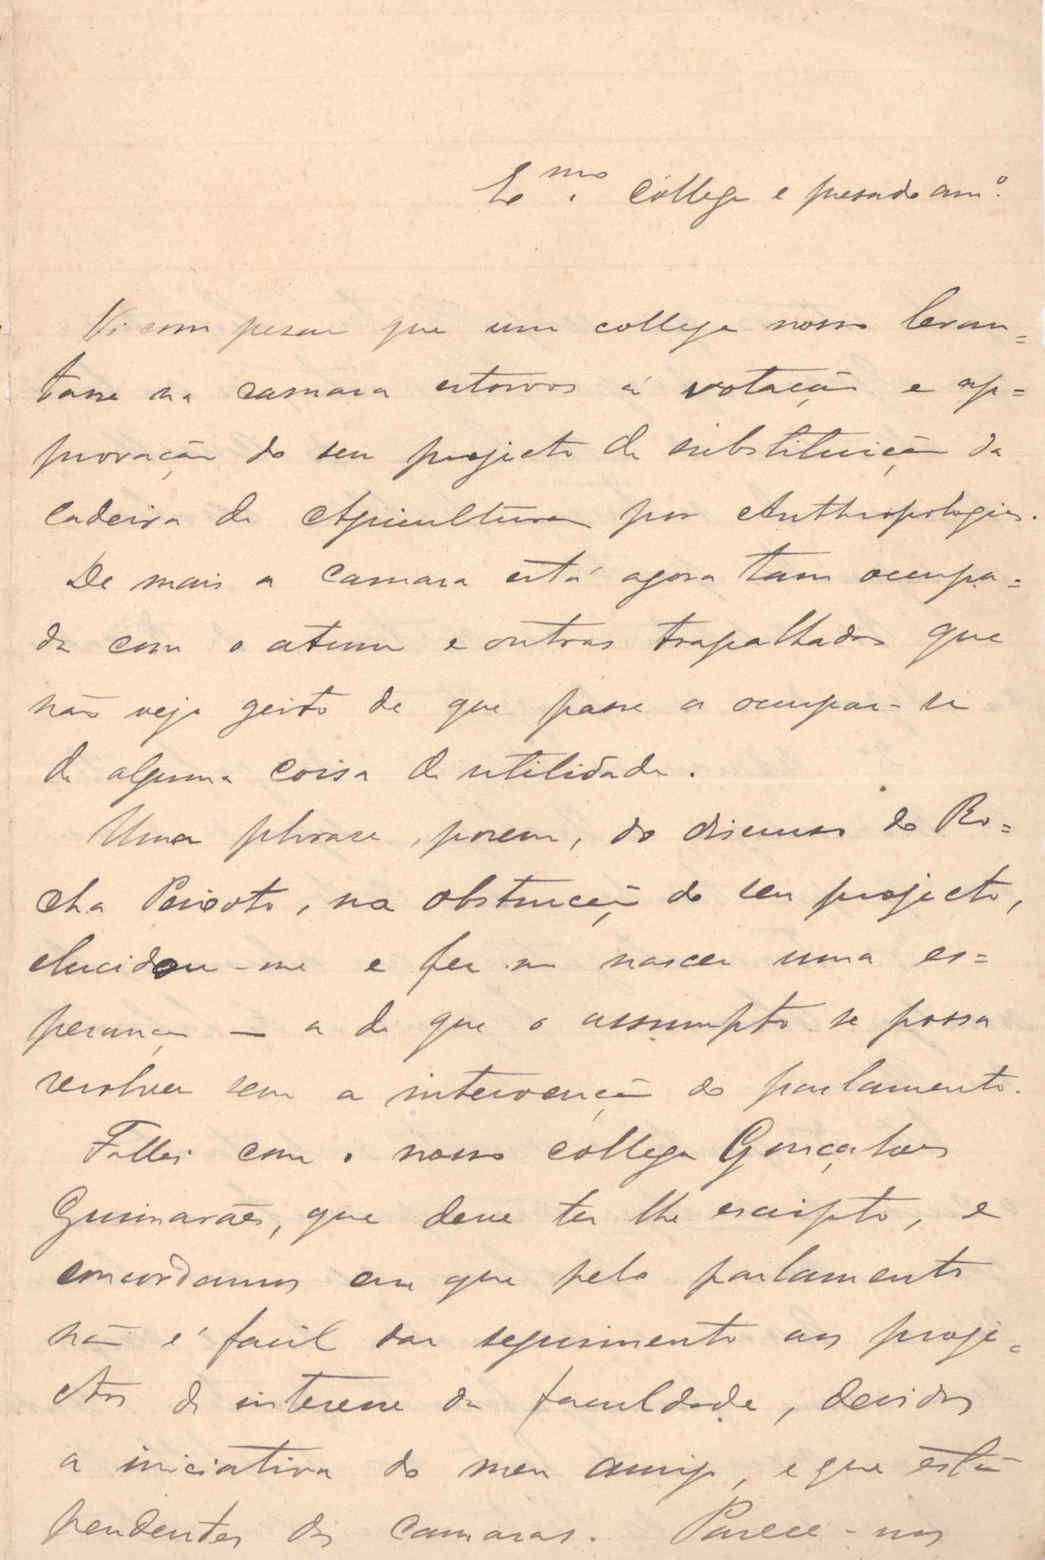 Ex.mo Collega e presado am.º
Vi com pesar que um collega nosso levan=
tasse na camara estorvos á votação e ap=
provação do seu projecto de substituição da
cadeira de Agricultura por Anthropologia.
De mais a camara está agora tam occupa=
da com o atum e outras trapalhadas que
não vejo geito de que passe a occupar-se
de alguma coisa de utilidade.
Uma phrase, porem, do discurso do Ro=
cha Peixoto, na obstrucção do seu projecto,
elucidou-me e fez-me nascer uma es=
perança — a de que o assumpto se possa
resolver sem a intervenção do parlamento.
Fallei com o nosso collega Gonçalves
Guimarães, que deve ter lhe escripto, e
concordamos em que pelo parlamento
não é facil dar seguimento aos proje=
ctos de interesse da faculdade, devidos
a iniciativa do meu amigo, e que estão
pendentes das camaras. Parece-nos